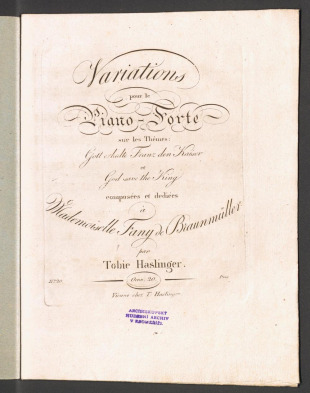 Variations
pour le
Piano-Forte
sur les Thêmes:
Gott erhalte Franz den Kaiser
et
God save the King
composées et dediées
à
Mademoiselle Fany de Braunmüller
par
Tobie Haslinger.
Oeuv. 20.
Vienne chez T. Haslinger
ARCIBISKUPSKÝ
HUDEBNÍ ARCHIV
V KROMĚŘÍŽI.